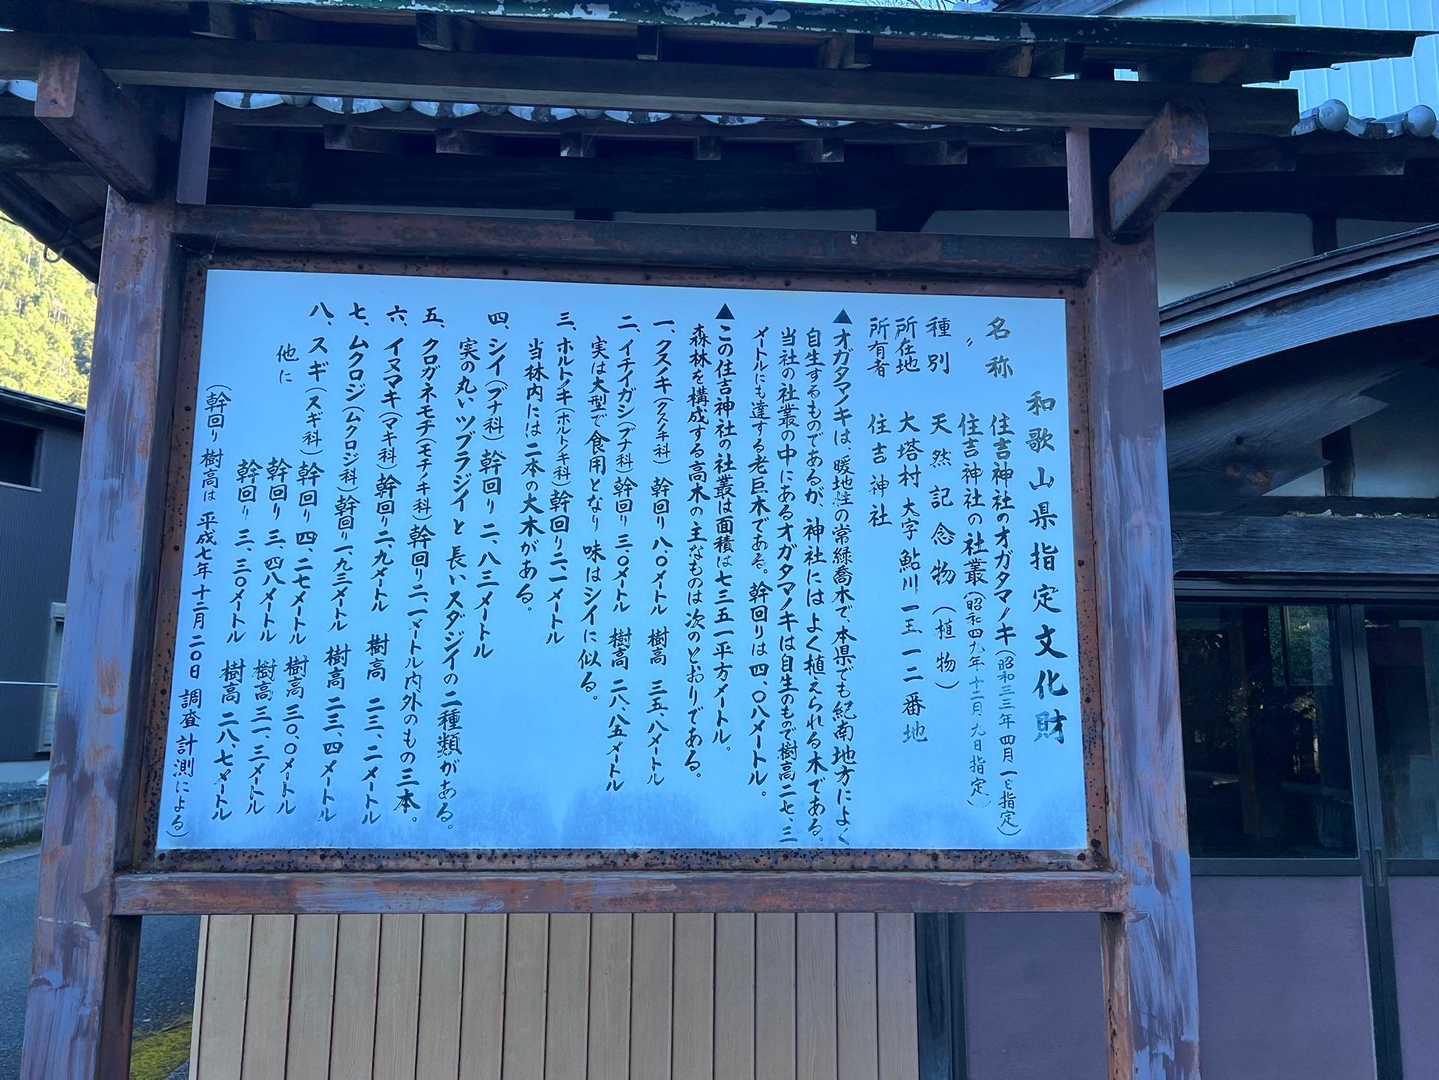 和歌山県指定文化財
名称 住吉神社のオガタマノキ(昭和三三年四月一日指定)
〃 住吉神社の社叢(昭和四九年十二月九日指定)
種別 天然記念物(植物)
所在地 大塔村大字鮎川一五一二番地
所有者 住吉神社
▲オガタマノキは、暖地性の常緑喬木で、本県でも紀南地方によく
自生するものであるが、神社にはよく植えられる木である。
当社の社叢の中にあるオガタマノキは自生のもので樹高二七、三
メートルにも達する老巨木である。幹回りは四、〇八メートル。
▲この住吉神社の社叢は面積は七三五一平方メートル。
森林を構成する高木の主なものは次のとおりである。
一、クスノキ(クスノキ科) 幹回り八、〇メートル 樹高 三五、八メートル
二、イチイガシ(ブナ科) 幹回り三、〇メートル 樹高 二八、八五メートル
実は大型で食用となり 味はシイに似る。
三、ホルトノキ(ホルトノキ科) 幹回り二、一メートル
当林内には二本の大木がある。
四、シイ(ブナ科) 幹回り二、八三メートル
実の丸いツブラジイと長いスダジイの二種類がある。
五、クロガネモチ(モチノキ科) 幹回り二、一メートル内外のもの三本。
六、イヌマキ(マキ科) 幹回り二、九メートル 樹高 二三、二メートル
七、ムクロジ(ムクロジ科) 幹回り一、九三メートル 樹高 二三、四メートル
八、スギ(スギ科) 幹回り四、二七メートル 樹高 三〇、〇メートル
他に 幹回り三、四八メートル 樹高 三一、三メートル
幹回り三、三〇メートル 樹高 二八、七メートル
(幹回り 樹高は 平成七年 十二月 二〇日 調査計測による)